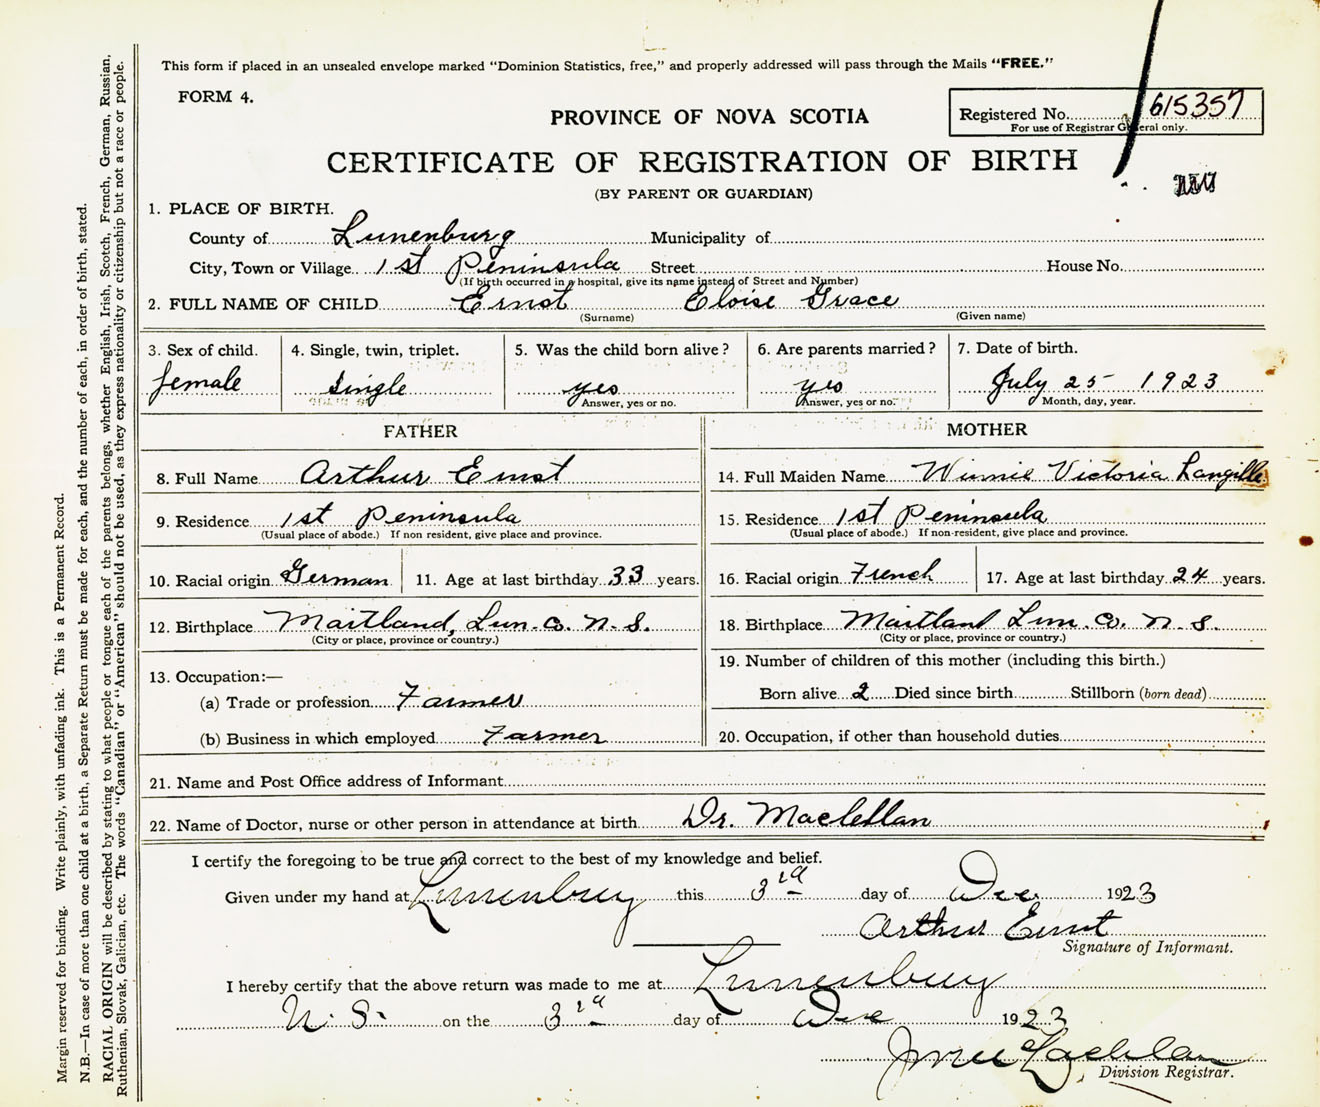 This form if placed in an unsealed envelope marked "Dominion Statistics, free," and properly addressed will pass through the Mails "FREE."
FORM 4.
PROVINCE OF NOVA SCOTIA
Registered No. 615357
For use of Registrar General only.
CERTIFICATE OF REGISTRATION OF BIRTH
(BY PARENT OR GUARDIAN)
1. PLACE OF BIRTH.
County of Lunenburg Municipality of
City, Town or Village 1st Peninsula Street House No.
(If birth occurred in a hospital, give its name instead of Street and Number)
2. FULL NAME OF CHILD Ernst Eloise Grace
(Surname) (Given name)
3. Sex of child. 4. Single, twin, triplet. 5. Was the child born alive? 6. Are parents married? 7. Date of birth.
female single yes yes July 25 1923
Answer, yes or no. Answer, yes or no. Month, day, year.
FATHER MOTHER
8. Full Name Arthur Ernst 14. Full Maiden Name Winnie Victoria Langille
9. Residence 1st Peninsula 15. Residence 1st Peninsula
(Usual place of abode.) If non resident, give place and province. (Usual place of abode.) If non-resident, give place and province.
10. Racial origin German 11. Age at last birthday 33 years. 16. Racial origin French 17. Age at last birthday 24 years.
12. Birthplace Maitland, Lun. Co. N. S. 18. Birthplace Maitland Lun. Co. N. S.
(City or place, province or country.) (City or place, province or country.)
13. Occupation:— 19. Number of children of this mother (including this birth.)
(a) Trade or profession Farmer Born alive 2 Died since birth Stillborn (born dead)
(b) Business in which employed Farmer 20. Occupation, if other than household duties
21. Name and Post Office address of Informant
22. Name of Doctor, nurse or other person in attendance at birth Dr. Maclellan
I certify the foregoing to be true and correct to the best of my knowledge and belief.
Given under my hand at Lunenburg this 3rd day of Dec 1923
Arthur Ernst
Signature of Informant.
I hereby certify that the above return was made to me at Lunenburg
N. S. on the 3rd day of Dec 1923
Lachlan
Division Registrar.
Margin reserved for binding. Write plainly, with unfading ink. This is a Permanent Record.
N.B.—In case of more than one child at a birth, a Separate Return must be made for each, and the number of each, in order of birth, stated.
RACIAL ORIGIN will be described by stating to what people or tongue each of the parents belongs, whether English, Irish, Scotch, French, German, Russian,
Ruthenian, Slovak, Galician, etc. The words "Canadian" or "American" should not be used, as they express nationality or citizenship but not a race or people.